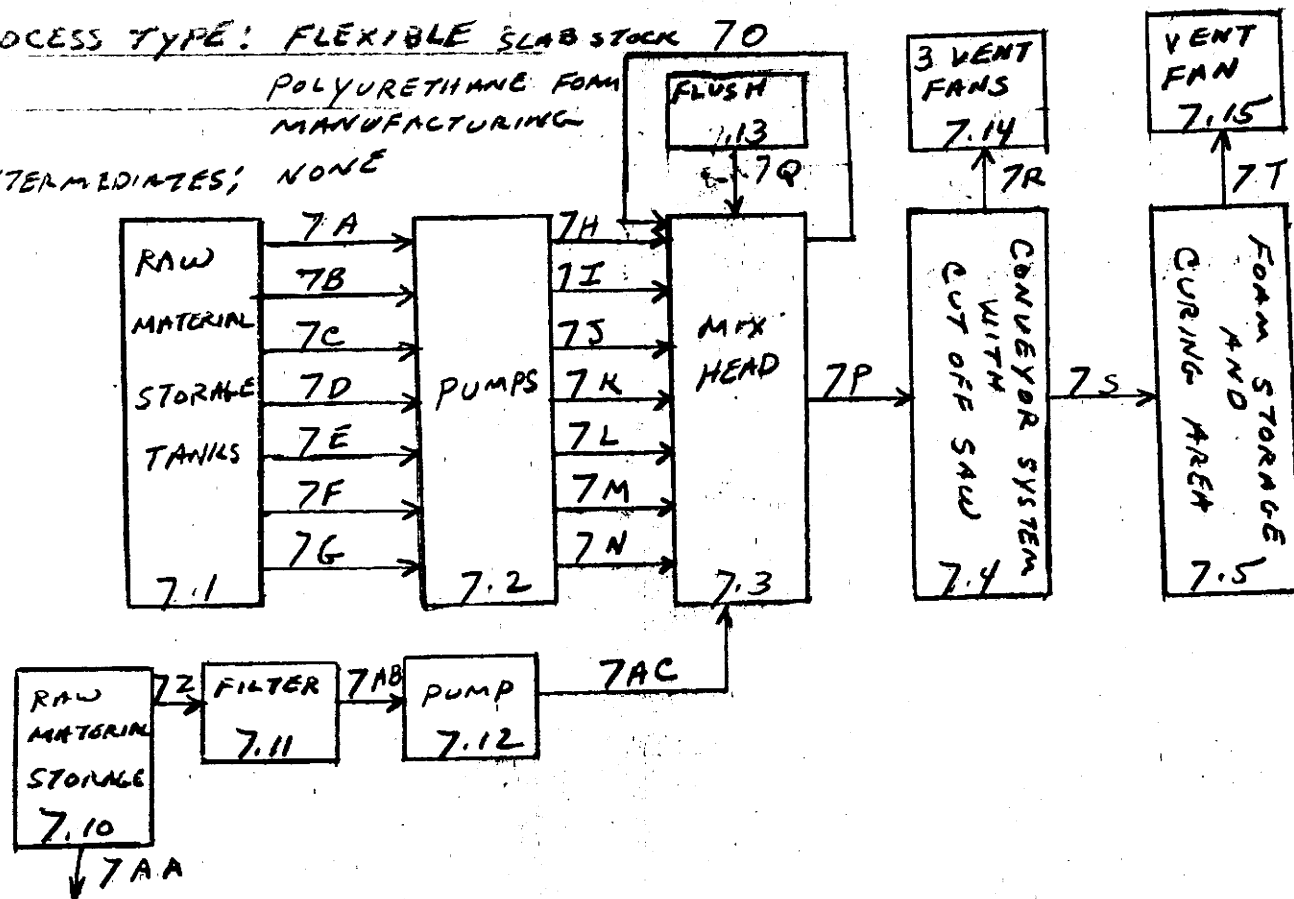 OCESS TYPE: FLEXIBLE SLABSTOCK 7O
POLYURETHANE FOAM
MANUFACTURING
TERMEDIATES; NONE
FLUSH
7.13
7Q
3 VENT
FANS
7.14
7R
VENT
FAN
7.15
7T
RAW
MATERIAL
STORAGE
TANKS
7.1
7A
7B
7C
7D
7E
7F
7G
PUMPS
7.2
7H
7I
7J
7K
7L
7M
7N
MIX
HEAD
7.3
7P
CONVEYOR SYSTEM
WITH
CUT OFF SAW
7.4
7S
FOAM STORAGE
AND
CURING AREA
7.5
RAW
MATERIAL
STORAGE
7.10
7Z
FILTER
7.11
7AB
PUMP
7.12
7AC
7AA